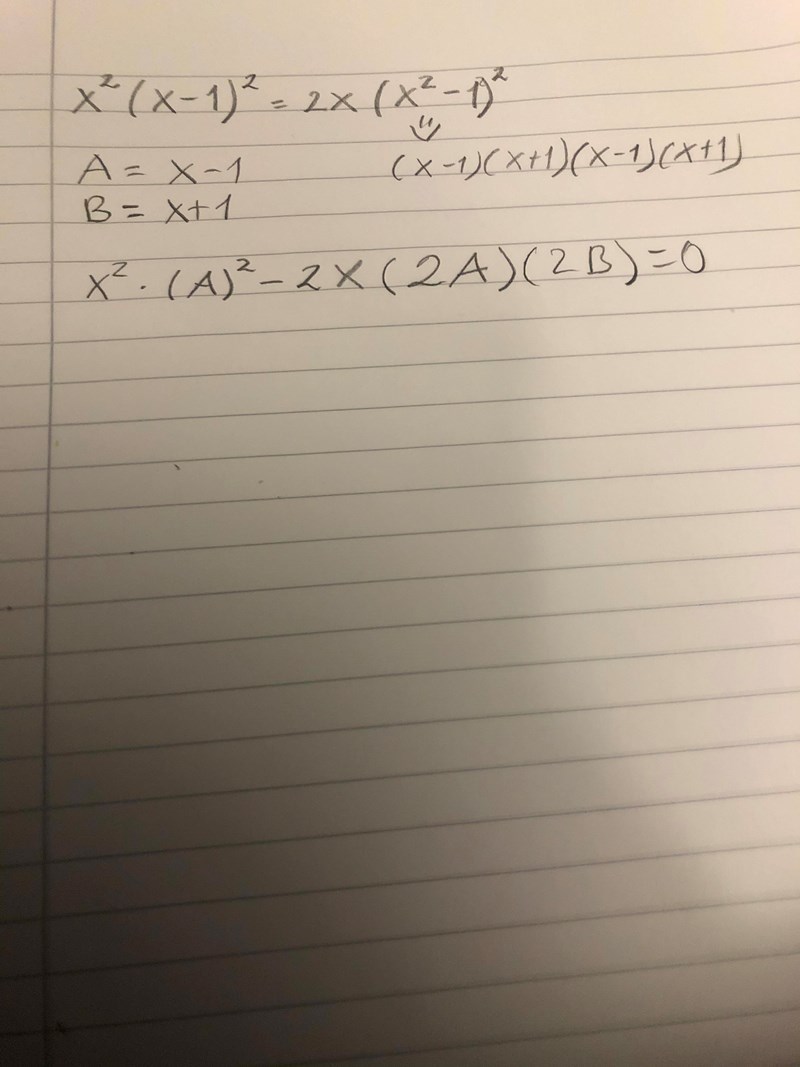 x²(x-1)² = 2x(x²-1)²
A = x-1
(x-1)(x+1)(x-1)(x+1)
B = x+1
x² · (A)² - 2x(2A)(2B) = 0